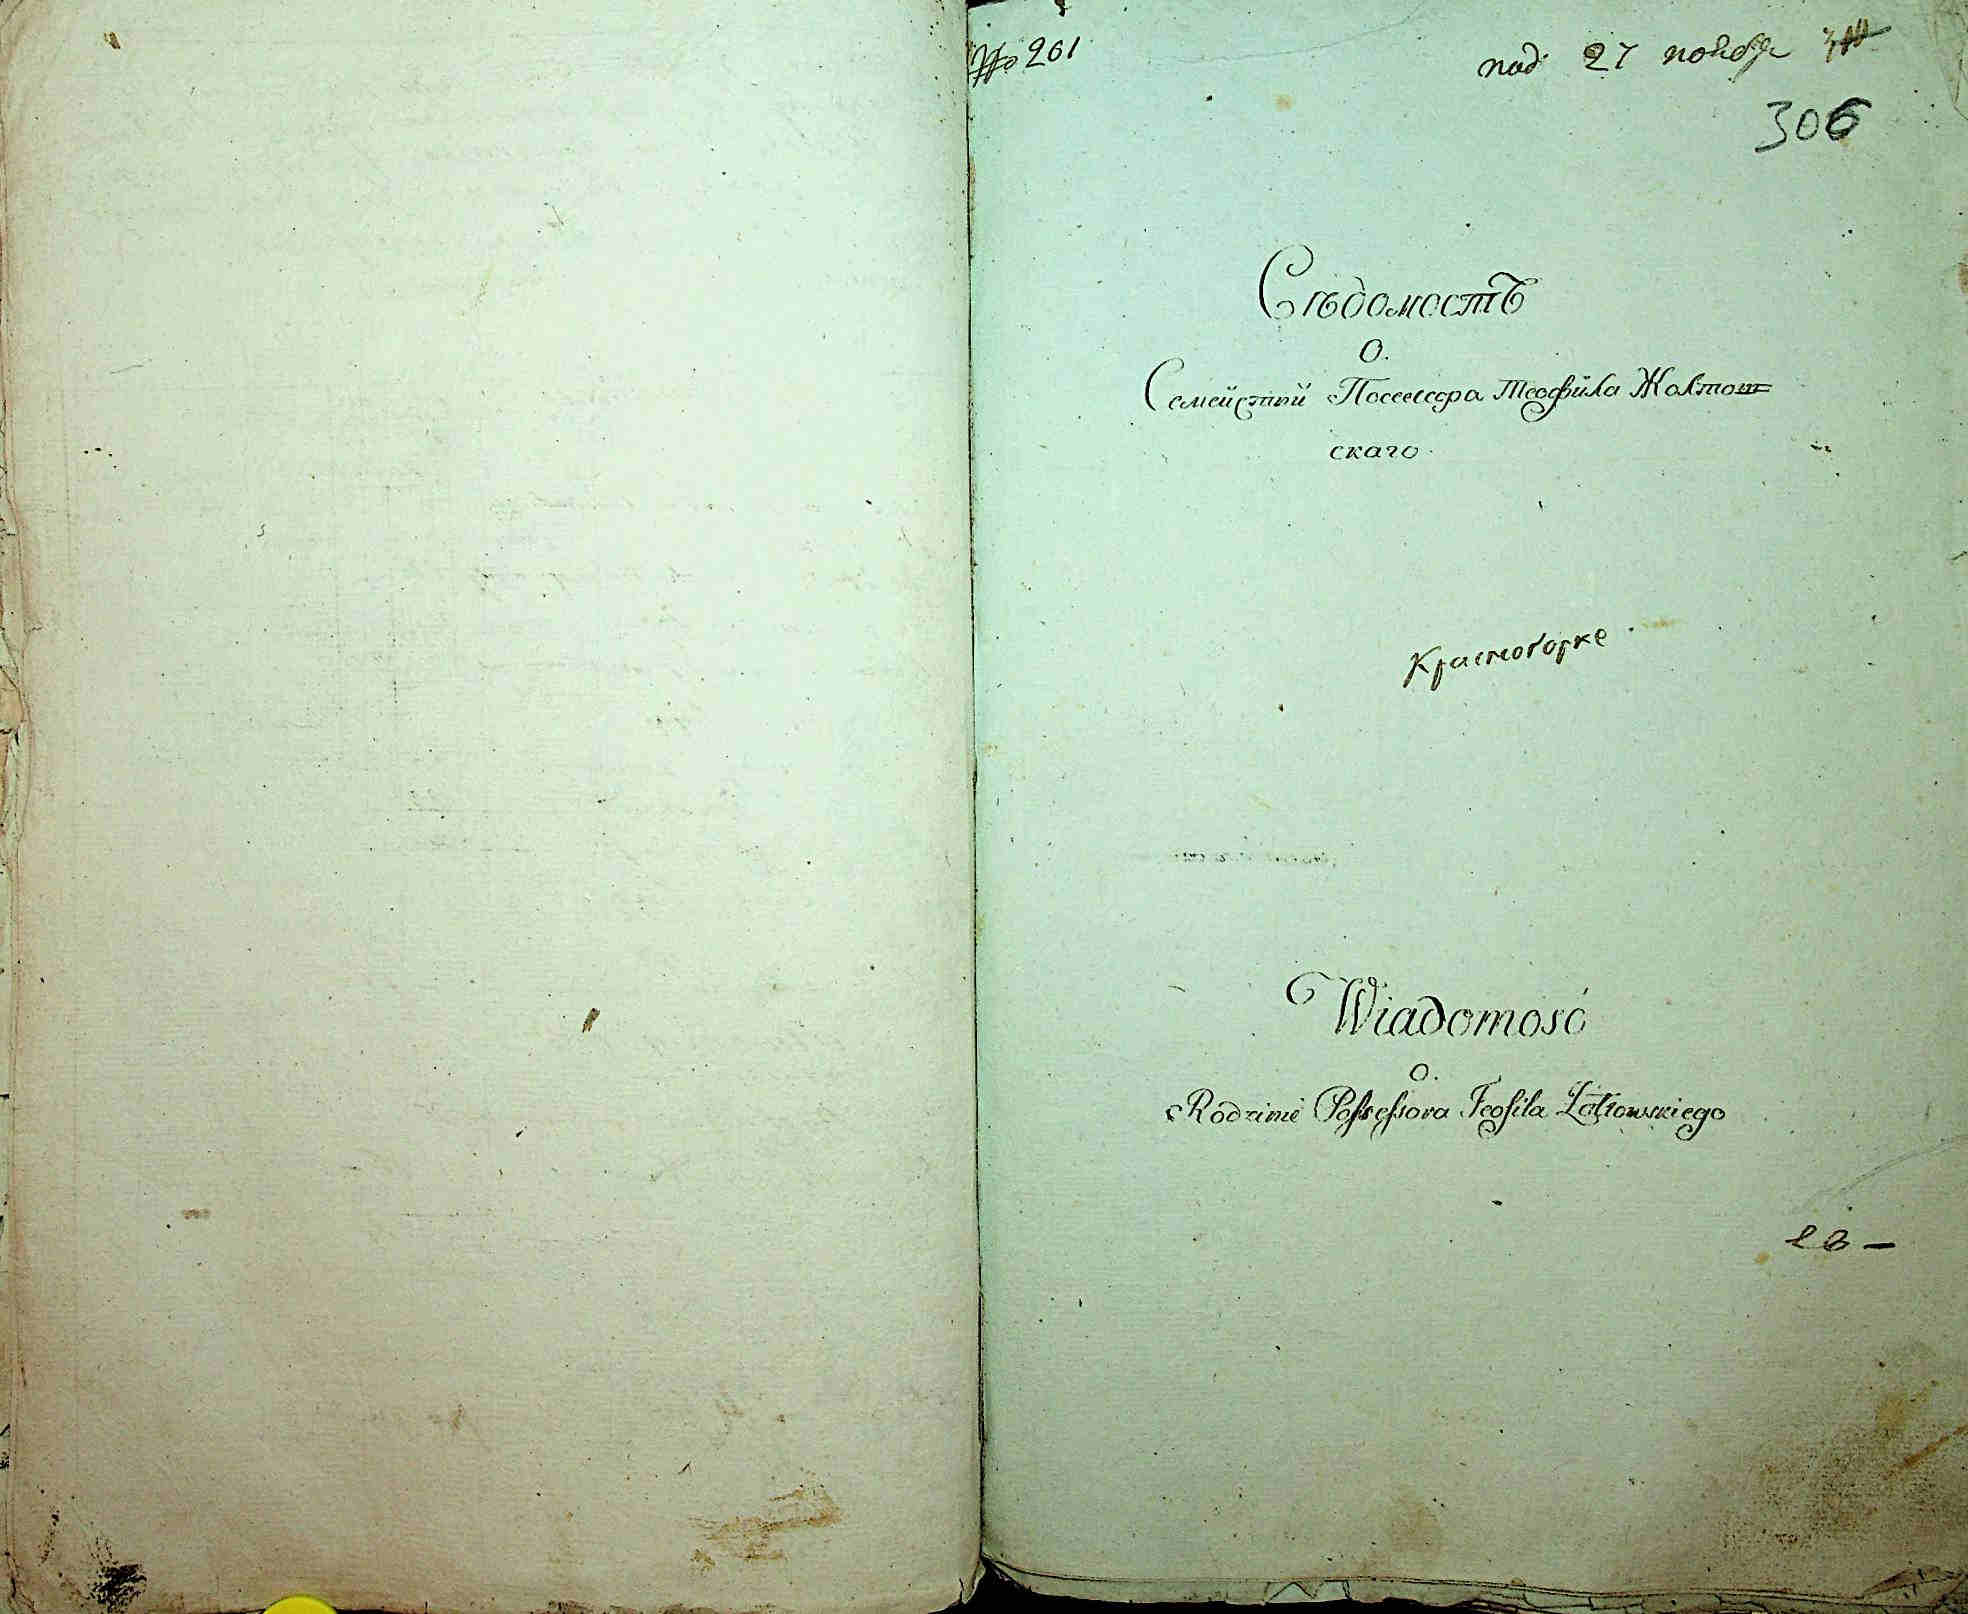 № 261
под 27 ноября
306
Свѣдомость
О.
Семействѣ Посессора Теофила Жолтов=
скаго.
Красногорке.
Wiadomość
O.
Rodzinie Possessora Teofila Żołtowskiego